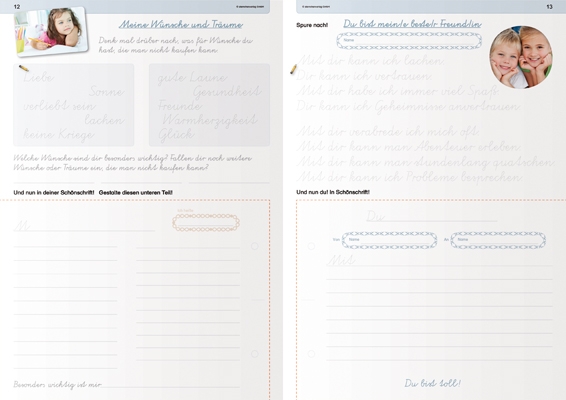 12
Meine Wünsche und Träume
Denk mal drüber nach, was für Wünsche du
hast, die man nicht kaufen kann.
Liebe
Sonne
verliebt sein
lachen
keine Kriege
gute Laune
Gesundheit
Freunde
Warmherzigkeit
Glück
Welche Wünsche sind dir besonders wichtig? Fallen dir noch weitere
Wünsche oder Träume ein, die man nicht kaufen kann?
Und nun in deiner Schönschrift! Gestalte diesen unteren Teil!
M
Besonders wichtig ist mir
13
Spure nach!
Du bist mein/e beste/r Freund/in
Name
Mit dir kann ich lachen.
Dir kann ich vertrauen.
Mit dir habe ich immer viel Spaß.
Dir kann ich Geheimnisse anvertrauen.
Mit dir verabrede ich mich oft.
Mit dir kann man Abenteuer erleben.
Mit dir kann man stundenlang quatschen.
Mit dir kann ich Probleme besprechen.
Und nun du! In Schönschrift!
Du
Von Name An Name
Mit
Du bist toll!